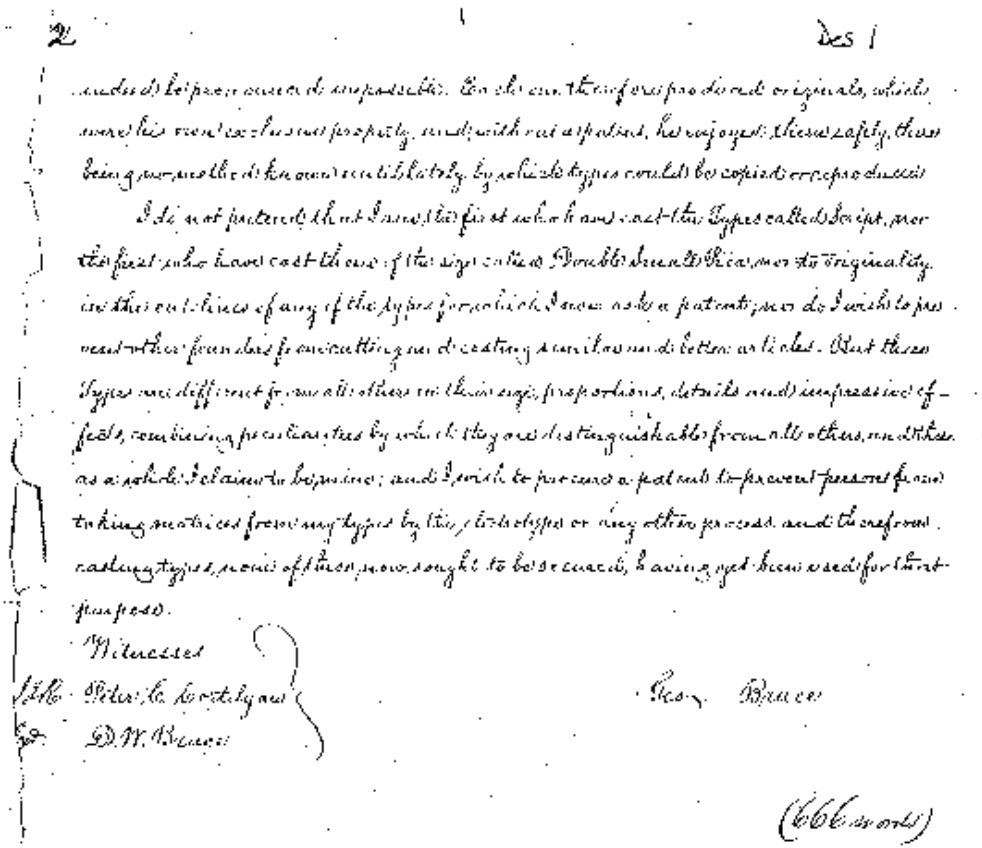 2 Des 1
indeed be pronounced impossible. Each one therefore produced originals, which
were his own exclusive property, and without a patent, he enjoyed them safely, there
being no method known until lately by which types could be copied or reproduced
I do not pretend that I am the first who have cast the Types called Script, nor
the first who have cast those of the size called Double Small Pica, nor to originality
in the outlines of any of the types for which I now ask a patent; nor do I wish to pre
vent other founders from cutting and casting similar and better articles. But these
Types are different from all others in their size, proportions, details and impressive ef-
fects, combining peculiarities by which they are distinguishable from all others, and these
as a whole I claim to be mine; and I wish to procure a patent to prevent persons from
taking matrices from my types by the stereotype or any other process and therefrom
casting types, none of these, now sought to be secured, having yet been used for that
purpose.
Witnesses
Peter C. Cortelyou Geo. Bruce
D. W. Bruce
(666 words)